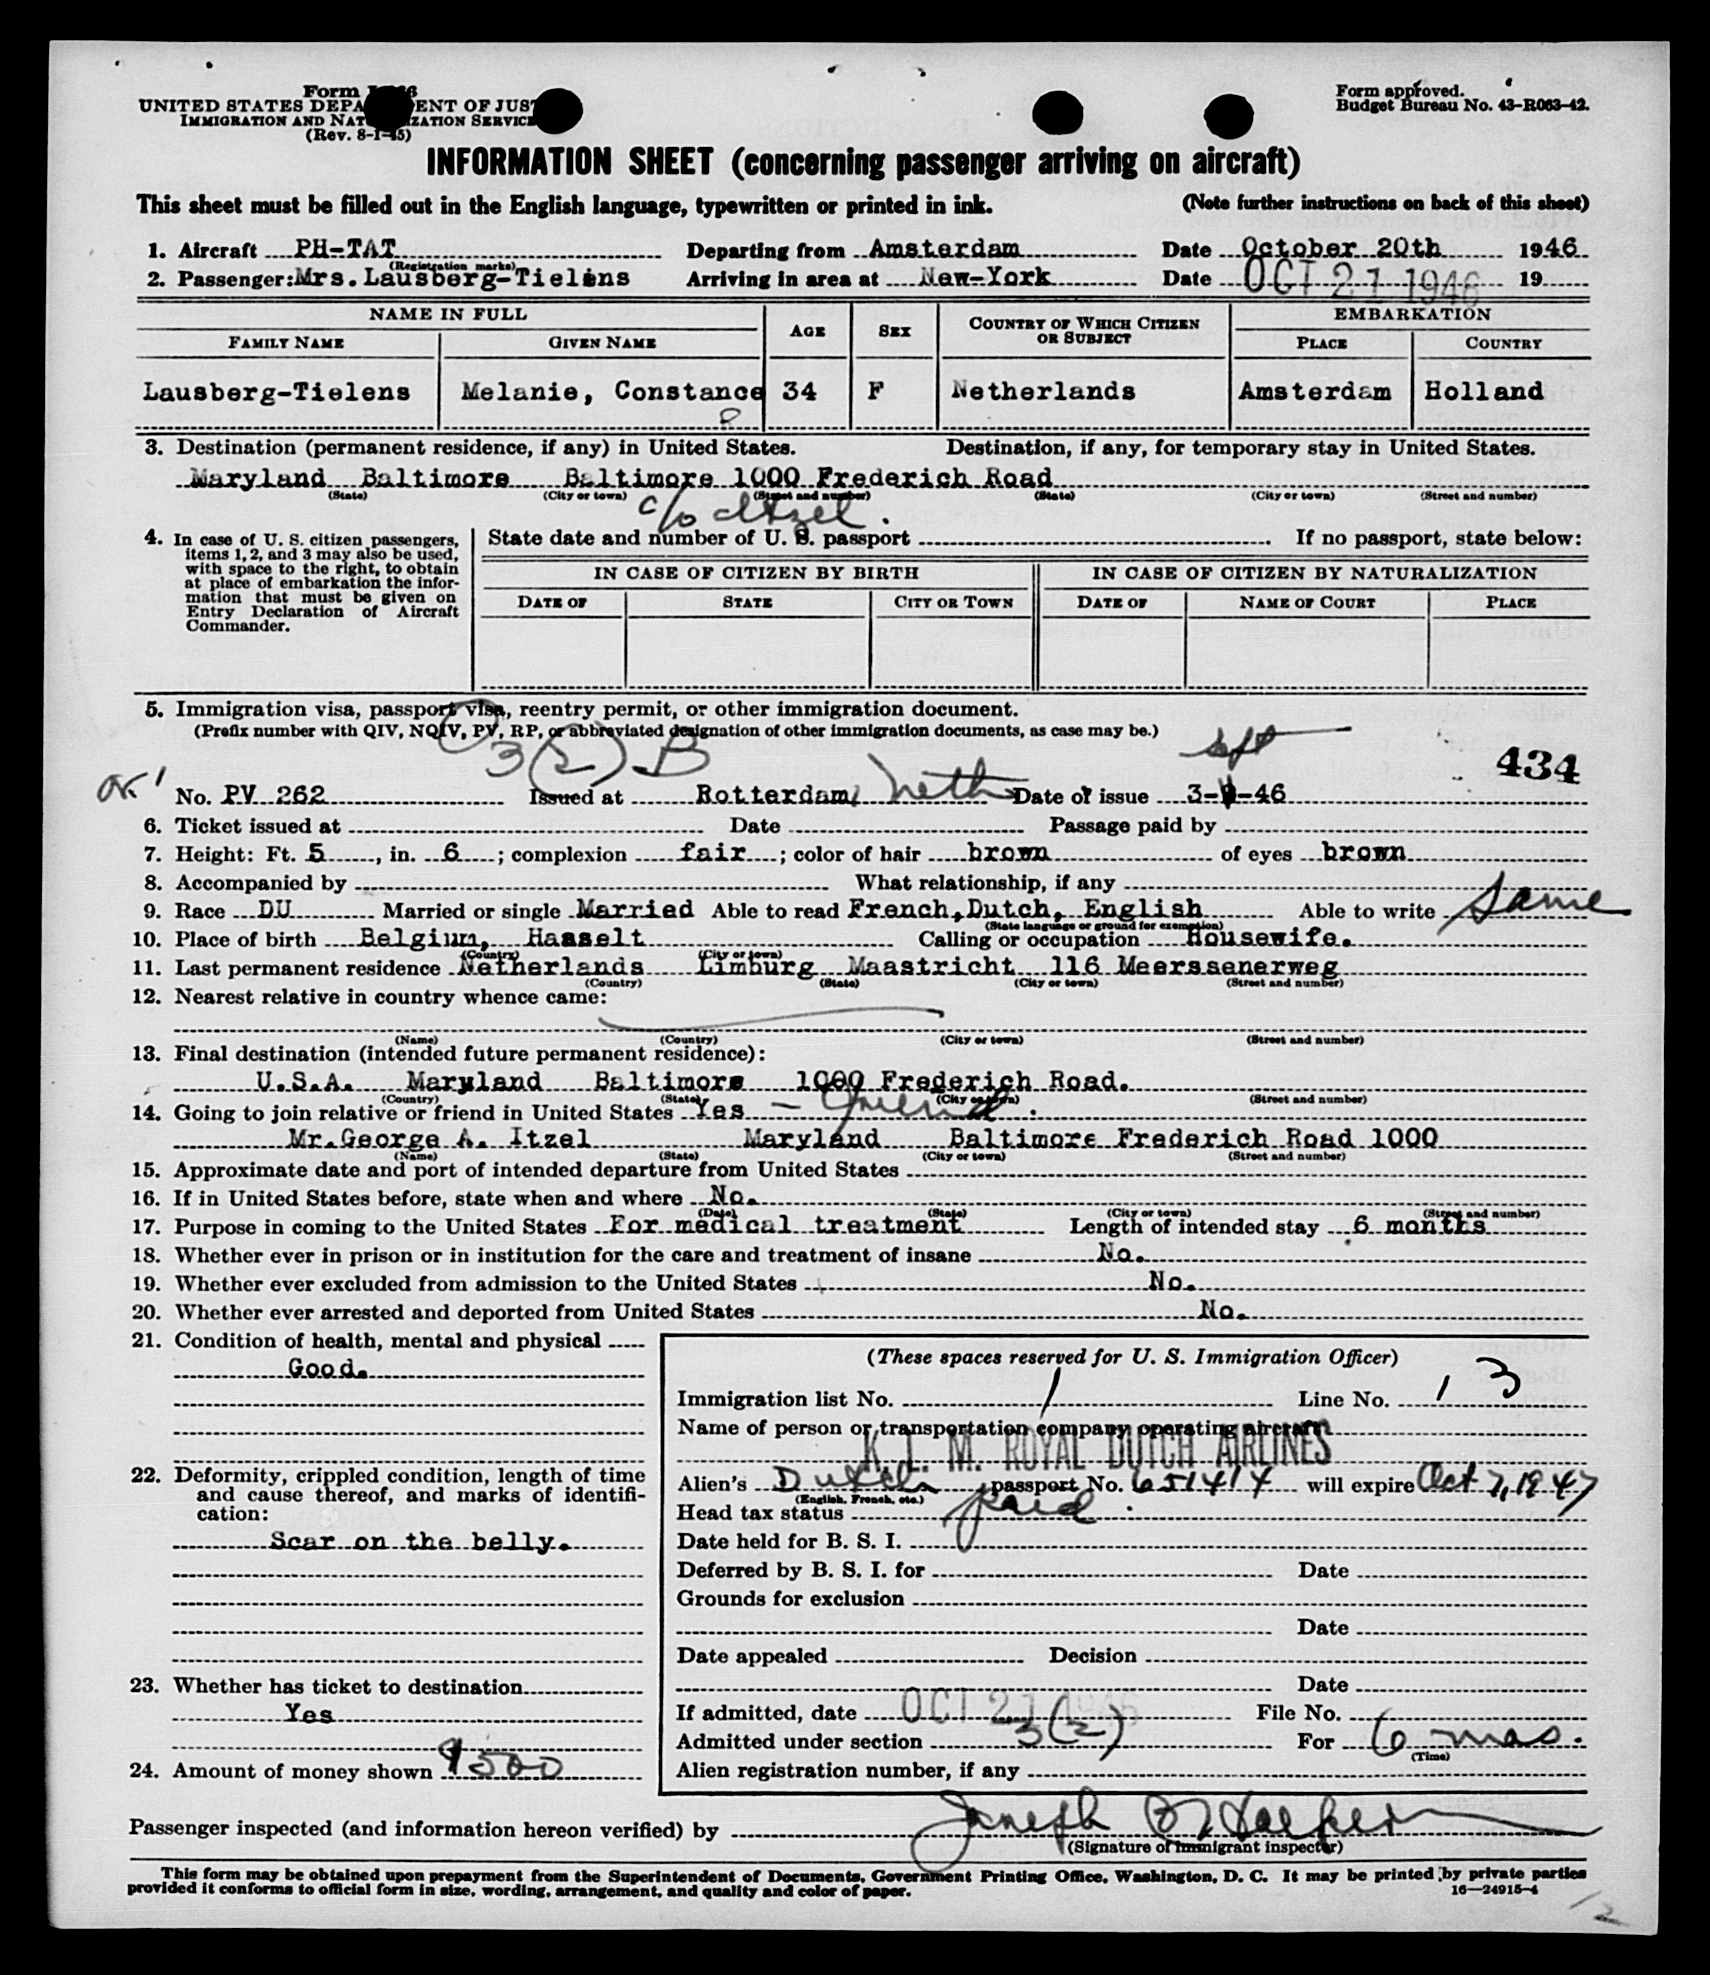 Form I-466
UNITED STATES DEPARTMENT OF JUSTICE
IMMIGRATION AND NATURALIZATION SERVICE
(Rev. 8-1-45)
Form approved.
Budget Bureau No. 43-R063-42.
INFORMATION SHEET (concerning passenger arriving on aircraft)
This sheet must be filled out in the English language, typewritten or printed in ink. (Note further instructions on back of this sheet)
1. Aircraft PH-TAT Departing from Amsterdam Date October 20th 1946
(Registration marks)
2. Passenger: Mrs. Lausberg-Tielens Arriving in area at New-York Date OCT 21 1946 19
NAME IN FULL AGE SEX COUNTRY OF WHICH CITIZEN OR SUBJECT EMBARKATION
FAMILY NAME GIVEN NAME PLACE COUNTRY
Lausberg-Tielens Melanie, Constance 34 F Netherlands Amsterdam Holland
3. Destination (permanent residence, if any) in United States. Destination, if any, for temporary stay in United States.
Maryland Baltimore Baltimore 1000 Frederich Road
(State) (City or town) (Street and number) (State) (City or town) (Street and number)
c/o Itzel.
4. In case of U. S. citizen passengers, items 1, 2, and 3 may also be used, with space to the right, to obtain at place of embarkation the information that must be given on Entry Declaration of Aircraft Commander.
State date and number of U. S. passport If no passport, state below:
IN CASE OF CITIZEN BY BIRTH IN CASE OF CITIZEN BY NATURALIZATION
DATE OF STATE CITY OR TOWN DATE OF NAME OF COURT PLACE
5. Immigration visa, passport visa, reentry permit, or other immigration document.
(Prefix number with QIV, NQIV, PV, RP, or abbreviated designation of other immigration documents, as case may be.)
3(2) B sept 434
No. PV 262 Issued at Rotterdam, Neth Date of issue 3-9-46
6. Ticket issued at Date Passage paid by
7. Height: Ft. 5, in. 6; complexion fair; color of hair brown of eyes brown
8. Accompanied by What relationship, if any
9. Race DU Married or single Married Able to read French, Dutch, English Able to write Same
(State language or ground for exemption)
10. Place of birth Belgium, Hasselt Calling or occupation Housewife.
(Country) (City or town)
11. Last permanent residence Netherlands Limburg Maastricht 116 Meerssenerweg
(Country) (State) (City or town) (Street and number)
12. Nearest relative in country whence came:
(Name) (Country) (City or town) (Street and number)
13. Final destination (intended future permanent residence):
U.S.A. Maryland Baltimore 1000 Frederich Road.
(Country) (State) (City or town) (Street and number)
14. Going to join relative or friend in United States Yes - friend.
Mr. George A. Itzel Maryland Baltimore Frederich Road 1000
(Name) (State) (City or town) (Street and number)
15. Approximate date and port of intended departure from United States
16. If in United States before, state when and where No.
(Date) (State) (City or town) (Street and number)
17. Purpose in coming to the United States For medical treatment Length of intended stay 6 months
18. Whether ever in prison or in institution for the care and treatment of insane No.
19. Whether ever excluded from admission to the United States No.
20. Whether ever arrested and deported from United States No.
21. Condition of health, mental and physical
Good.
22. Deformity, crippled condition, length of time and cause thereof, and marks of identification:
Scar on the belly.
23. Whether has ticket to destination
Yes
24. Amount of money shown $500
(These spaces reserved for U. S. Immigration Officer)
Immigration list No. 1 Line No. 13
Name of person or transportation company operating aircraft
K. L. M. ROYAL DUTCH AIRLINES
Alien's Dutch passport No. 651414 will expire Oct 7, 1947
(English, French, etc.)
Head tax status paid.
Date held for B. S. I.
Deferred by B. S. I. for Date
Grounds for exclusion
Date
Date appealed Decision
Date
If admitted, date OCT 21 1946 File No.
Admitted under section 3(2) For 6 mos.
(Time)
Alien registration number, if any
Passenger inspected (and information hereon verified) by Joseph
(Signature of immigrant inspector)
This form may be obtained upon prepayment from the Superintendent of Documents, Government Printing Office, Washington, D. C. It may be printed by private parties
provided it conforms to official form in size, wording, arrangement, and quality and color of paper.
16—24915-4
12